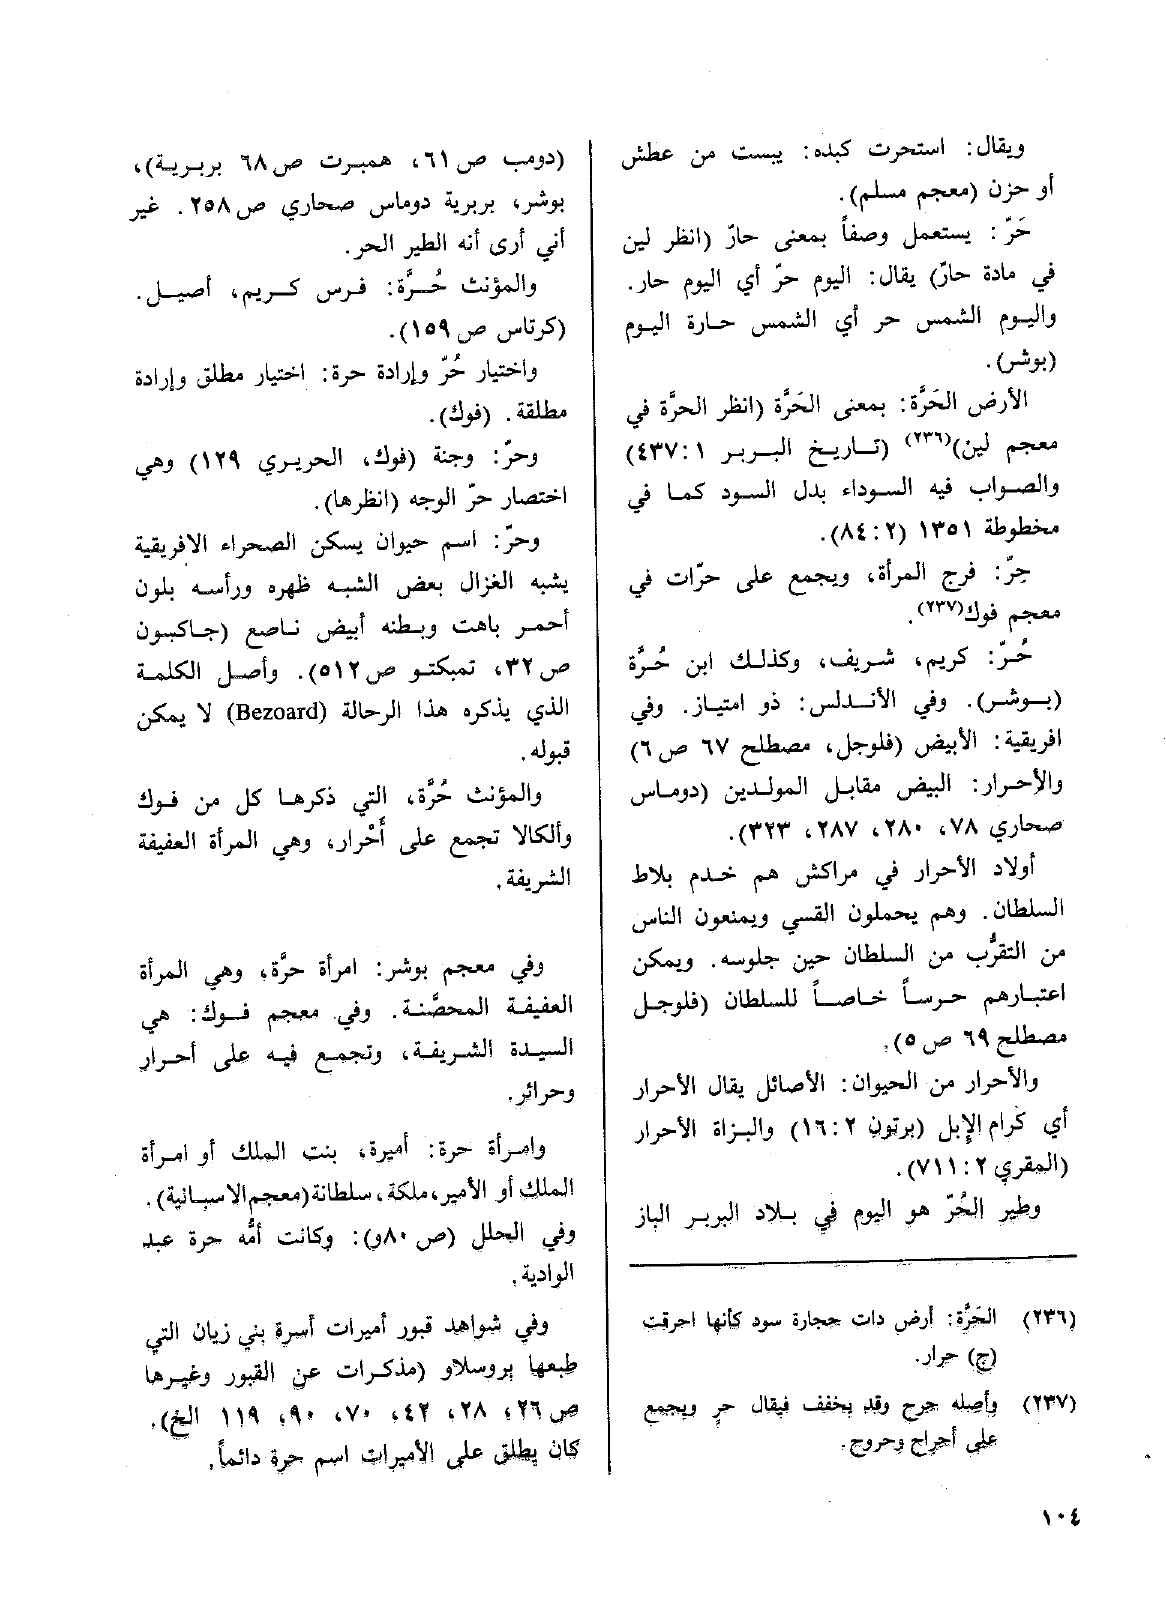 ويقال: استحرت كبده: يبست من عطش
أو حزن (معجم مسلم).
حَرّ: يستعمل وصفاً بمعنى حارّ (انظر لين
في مادة حارّ) يقال: اليوم حرّ أي اليوم حار.
واليوم الشمس حر أي الشمس حارة اليوم
(بوشر).
الأرض الحَرَّة: بمعنى الحَرَّة (انظر الحرَّة في
معجم لين)(٢٣٦) (تاريخ البربر ١: ٤٣٧)
والصواب فيه السوداء بدل السود كما في
مخطوطة ١٣٥١ (٢: ٨٤).
حِرّ: فرج المرأة، ويجمع على حرّات في
معجم فوك(٢٣٧).
حُرّ: كريم، شريف، وكذلك ابن حُرَّة
(بوشر). وفي الأندلس: ذو امتياز. وفي
افريقية: الأبيض (فلوجل، مصطلح ٦٧ ص ٦)
والأحرار: البيض مقابل المولدين (دوماس
صحاري ٧٨، ٢٨٠، ٢٨٧، ٣٢٣).
أولاد الأحرار في مراكش هم خدم بلاط
السلطان. وهم يحملون القسي ويمنعون الناس
من التقرُّب من السلطان حين جلوسه. ويمكن
اعتبارهم حرساً خاصاً للسلطان (فلوجل
مصطلح ٦٩ ص ٥).
والأحرار من الحيوان: الأصائل يقال الأحرار
أي كرام الإبل (برتون ٢: ١٦) والبزاة الأحرار
(المقري ٢: ٧١١).
وطير الحُرّ هو اليوم في بلاد البربر الباز
(٢٣٦) الحَرَّة: أرض ذات حجارة سود كأنها احرقت
(ج) حرار.
(٢٣٧) وأصله حِرح وقد يخفف فيقال حرٍ ويجمع
على أحراح وحروح.
(دومب ص ٦١، همبرت ص ٦٨ بربرية)،
بوشر، بربرية دوماس صحاري ص ٢٥٨. غير
أني أرى أنه الطير الحر.
والمؤنث حُرَّة: فرس كريم، أصيل.
(كرتاس ص ١٥٩).
واختيار حُرّ وإرادة حرة: اختيار مطلق وإرادة
مطلقة. (فوك).
وحرّ: وجنة (فوك، الحريري ١٢٩) وهي
اختصار حرّ الوجه (انظرها).
وحرّ: اسم حيوان يسكن الصحراء الافريقية
يشبه الغزال بعض الشبه ظهره ورأسه بلون
أحمر باهت وبطنه أبيض ناصع (جاكبون
ص ٣٢، تمبكتو ص ٥١٢). وأصل الكلمة
الذي يذكره هذا الرحالة (Bezoard) لا يمكن
قبوله.
والمؤنث حُرَّة، التي ذكرها كل من فوك
وألكالا تجمع على أَحْرار، وهي المرأة العفيفة
الشريفة.
وفي معجم بوشر: امرأة حرَّة، وهي المرأة
العفيفة المحصَّنة. وفي معجم فوك: هي
السيدة الشريفة، وتجمع فيه على أحرار
وحرائر.
وامرأة حرة: أميرة، بنت الملك أو امرأة
الملك أو الأمير، ملكة، سلطانة (معجم الاسبانية).
وفي الحلل (ص ٨٠و): وكانت أمُّه حرة عبد
الوادية.
وفي شواهد قبور أميرات أسرة بني زيان التي
طبعها بروسلاو (مذكرات عن القبور وغيرها
ص ٢٦، ٢٨، ٤٢، ٧٠، ٩٠، ١١٩ الخ).
كان يطلق على الأميرات اسم حرة دائماً.
١٠٤